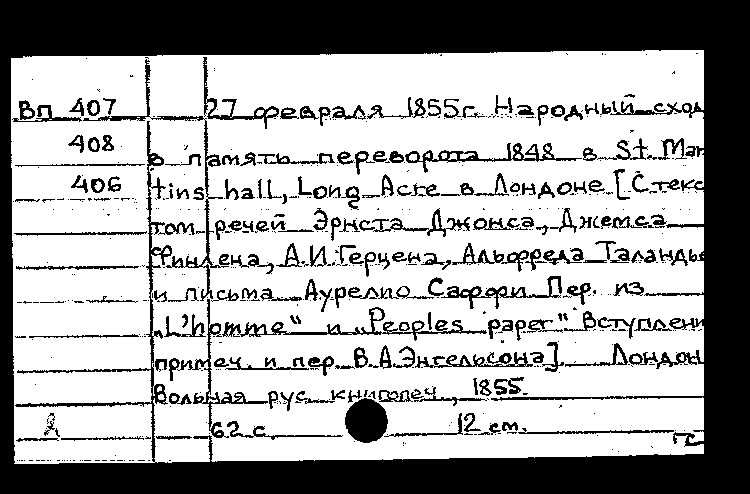 Вп 407 27 февраля 1855г. Народный сход
408 в память переворота 1848 в St. Mar
406 tins hall, Long Acre в Лондоне [С текс
том речей Эрнста Джонса, Джемса
Финлена, А.И.Герцена, Альфреда Таландье
и письма Аурелио Саффи Пер. из
„L'homme“ и „Peoples paper“ Вступлени
примеч. и пер. В.А.Энгельсона] Лондон
Вольная рус. книгопеч., 1855.
62 с. 12 см.